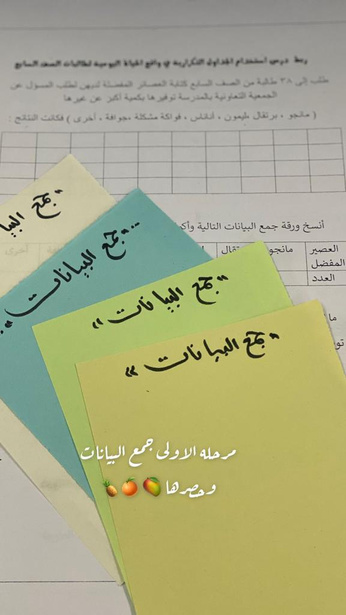 ربط درس استخدام الجداول التكرارية في واقع الحياة اليومية لطالبات الصف السابع
طلب إلى ٣٨ طالبة من الصف السابع كتابة العصائر المفضلة لديهن لطلب المسؤل عن
الجمعية التعاونية بالمدرسة توفيرها بكمية أكبر عن غيرها
( مانجو ، برتقال ،ليمون ، أناناس ، فواكة مشكلة ،جوافة ، أخرى ) فكانت النتائج :
أنسخ ورقة جمع البيانات التالية
العصير المفضل
مانجو
العدد
"جمع البيا
"جمع البيانات"
"جمع البيانات"
"جمع البيانات"
مرحله الاولى جمع البيانات
وحصرها 🥭🍊🍍